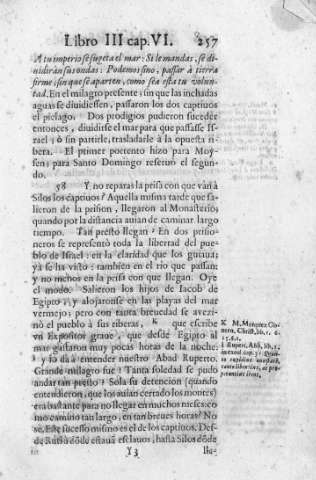 Libro III cap. VI. 257
A tu imperio se sugeta el mar: Si le mandas, se di-
vidirán sus ondas: Podemos sino, passar à tierra
firme, sin que se aparten, como sea esta tu volun-
tad. En el milagro presente, sin que las inchadas
aguas se dividiessen, passaron los dos captivos
el pielago. Dos prodigios pudieron suceder
entonces, dividirse el mar para que passasse Is-
rael; ò sin partirle, trasladarle à la opuesta ri-
bera. El primer portento hizo para Moy-
sen; para Santo Domingo reservó el segun-
do.
58 Y no reparas la prisa con que van à
Silos los captivos? Aquella misma tarde que sa-
lieron de la prision, llegaron al Monasterio;
quando por la distancia avian de caminar largo
tiempo. Tan presto llegan? En dos prisio-
neros se representò toda la libertad del pue-
blo de Israel: en la claridad que los guiava;
ya se ha visto: tambien en el rio que passan;
y no menos en la prisa con que llegan. Oye
el modo. Salieron los hijos de Jacob de
Egipto, y alojaronse en las playas del mar
vermejo; pero con tanta brevedad se avezi-
nò el pueblo à sus riberas, k que escribe
un Expositor grave, que desde Egipto al
mar gastaron muy pocas horas de la noche.
l y lo dà à entender nuestro Abad Ruperto.
Grande milagro fue! Tanta soledad se pudo
andar tan presto? Sola su detencion (quando
entendieron, que los avian cerrado los montes)
era bastante para no llegar en muchos meses: co-
mo camino tan largo, en tan breves horas? No
se. Este sucesso mismo es el de los captivos. Des-
de donde estavan esclavos, hasta Silos dòde
Y 3
K M. Marquez
l Rupert. Abb. lib. 2.
in exod. cap.